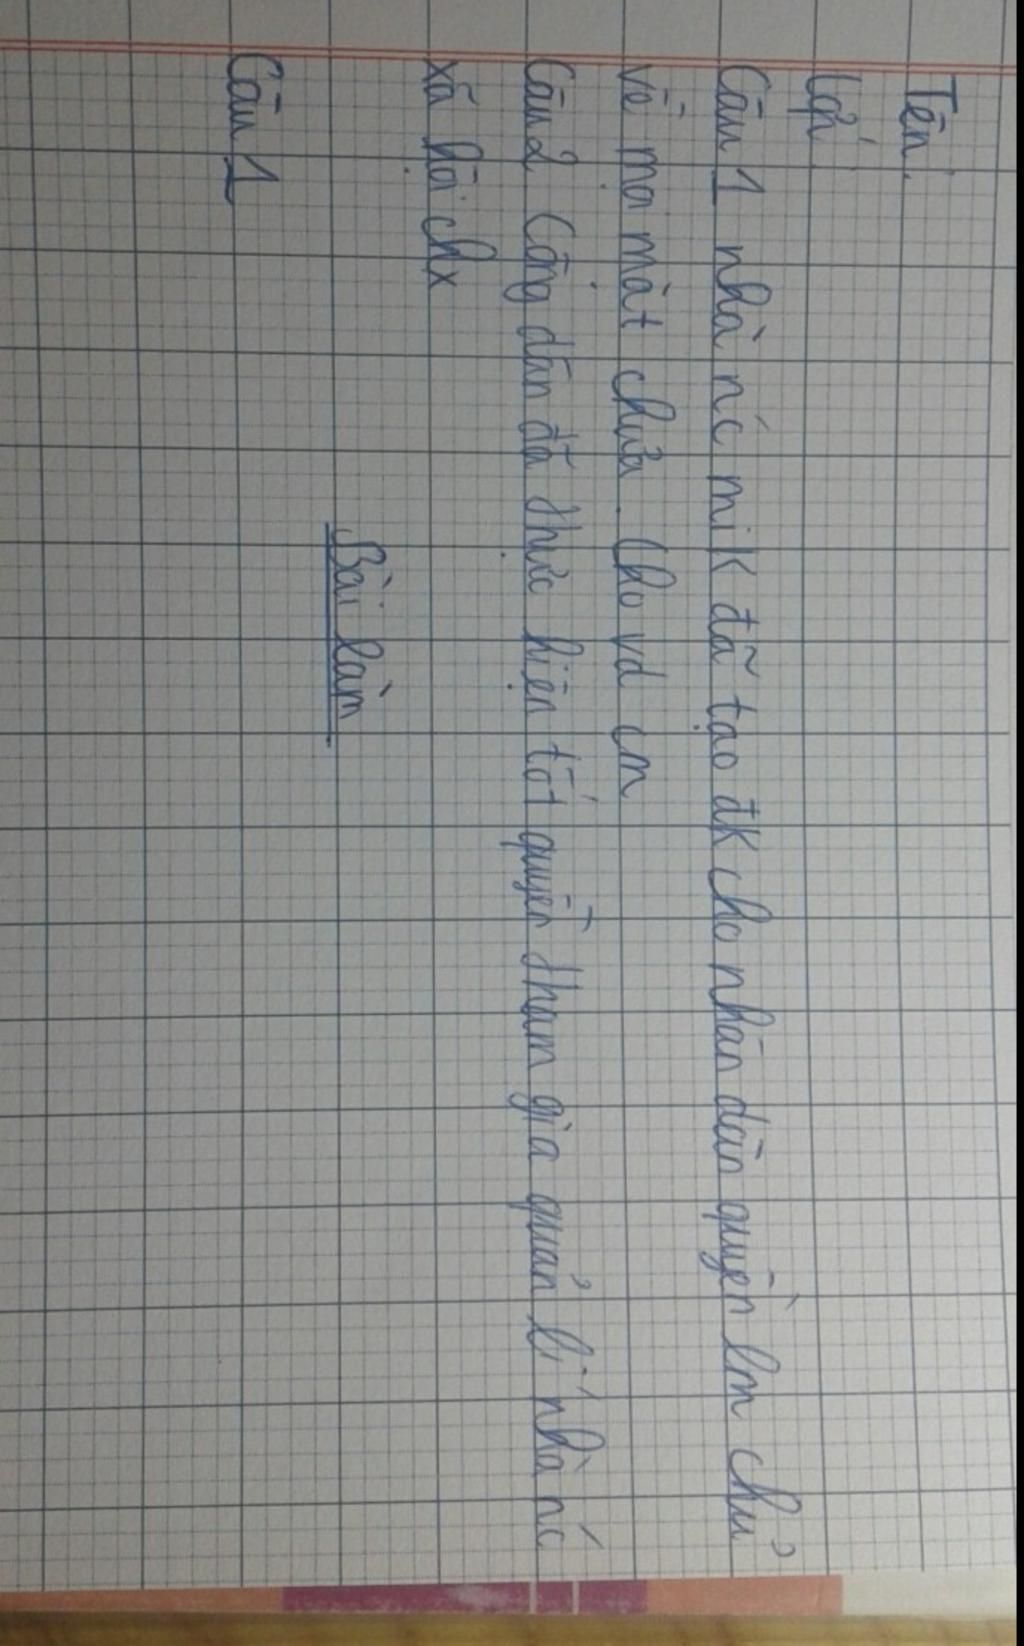 Tên:
Lớp:
Câu 1 nhà nc mik đã tạo đk cho nhân dân quyền lm chủ
về mọi mặt chưa. Cho vd cm
Câu 2 Công dân đã thực hiện tốt quyền tham gia quản lí nhà nc
xã hội chx
Bài làm
Câu 1